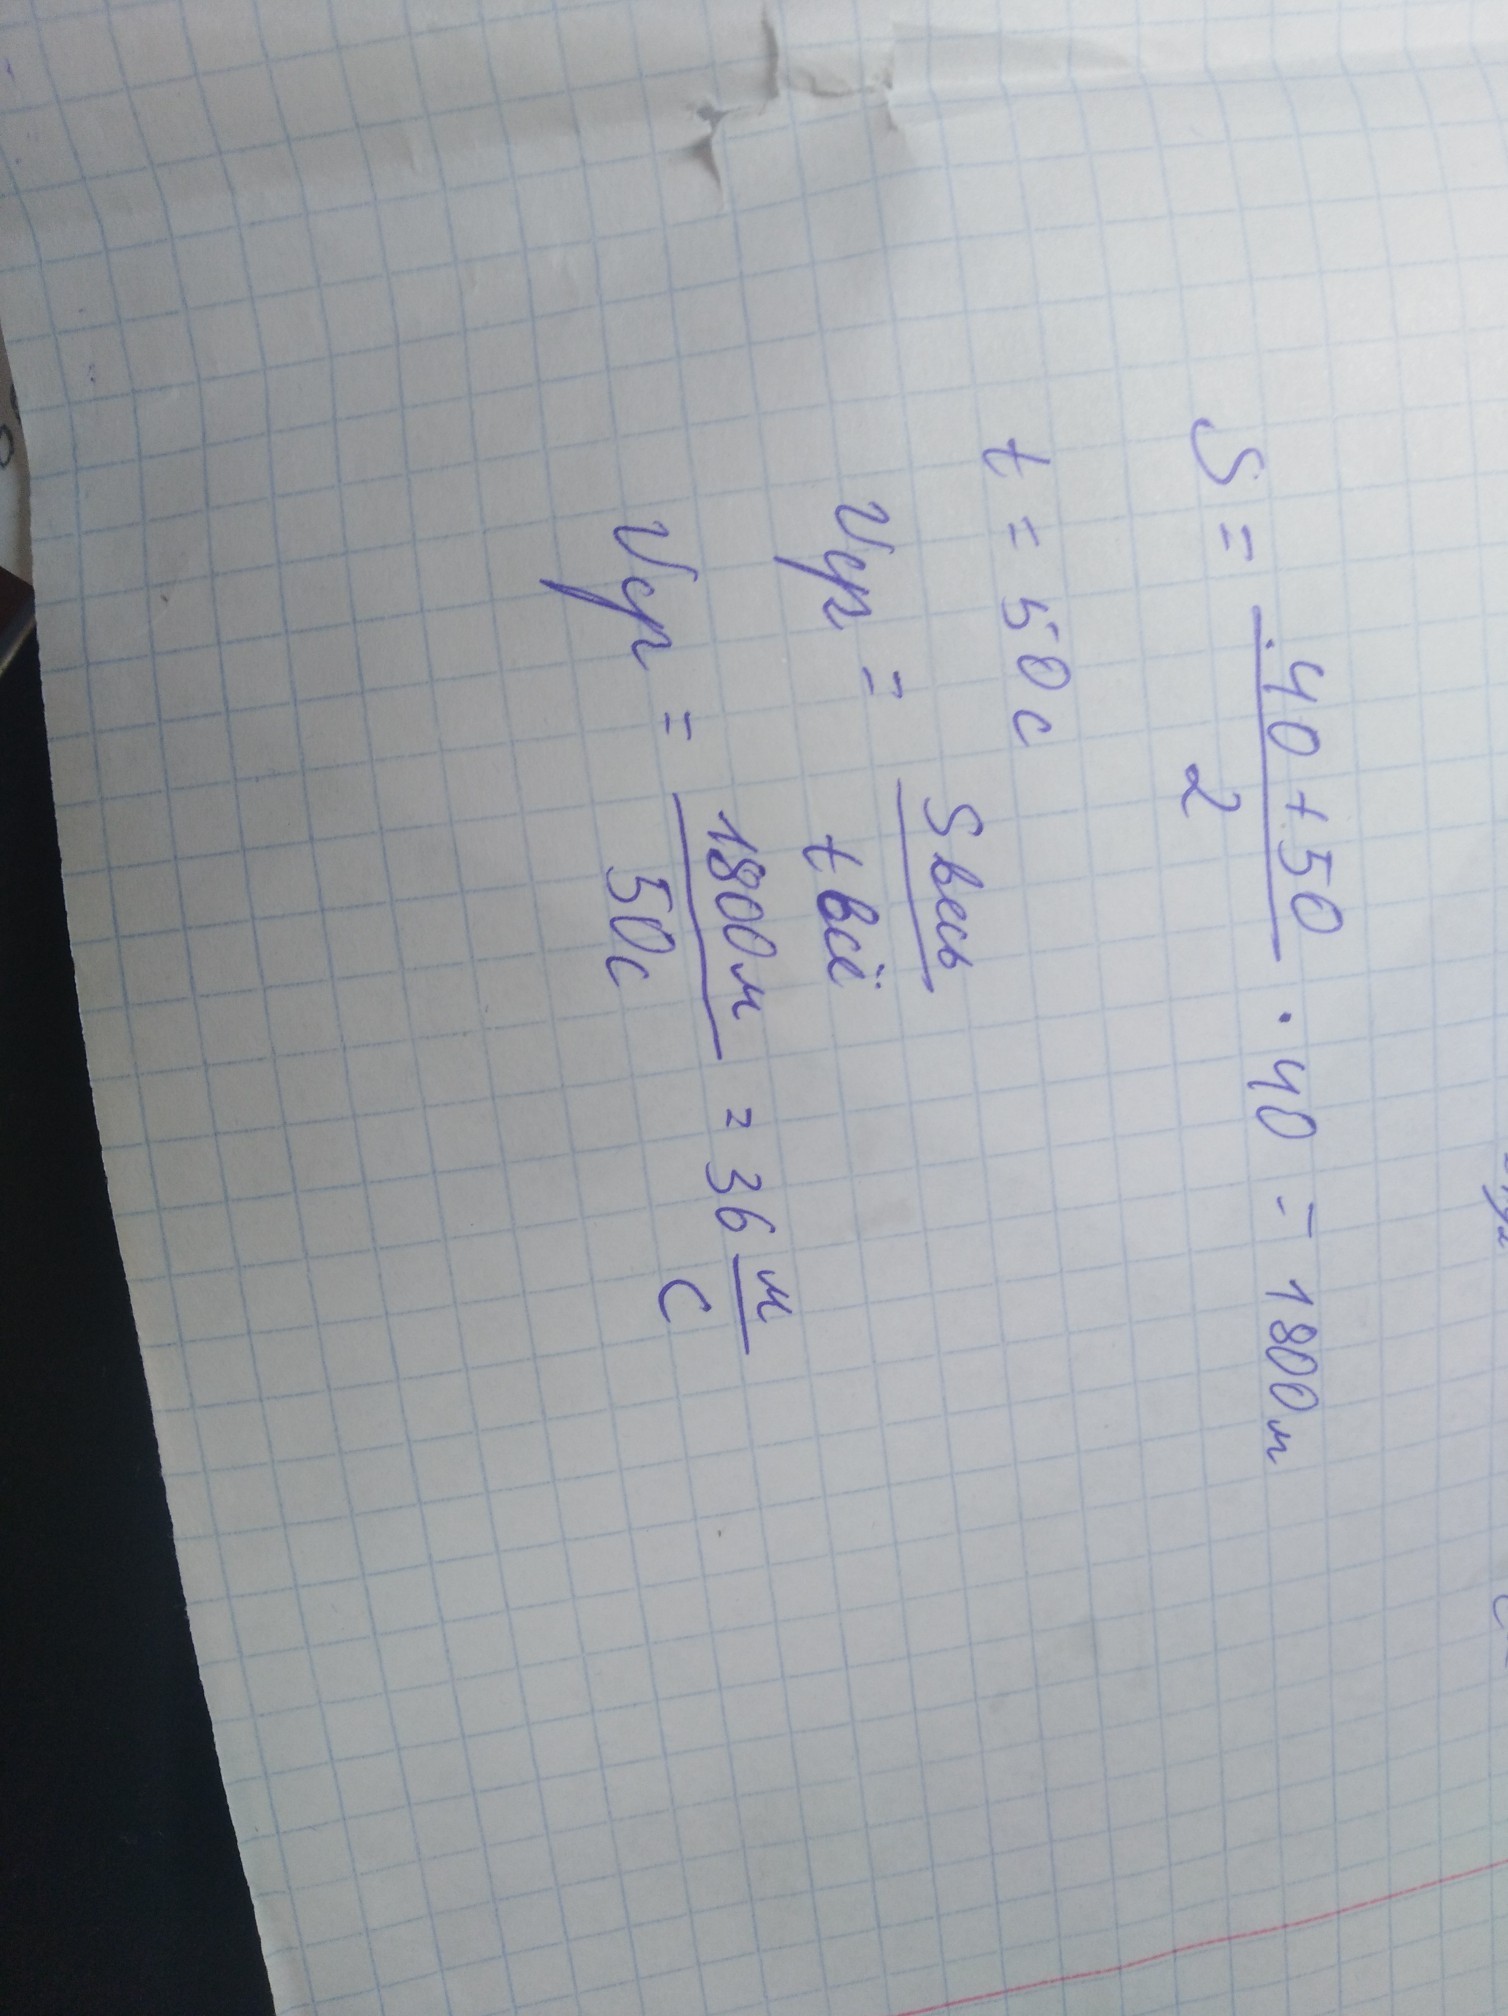 S = 40 + 50 / 2 · 40 = 1800 м
t = 50 c
Vср = S весь / t всё
Vср = 1800 м / 50 с = 36 м/с